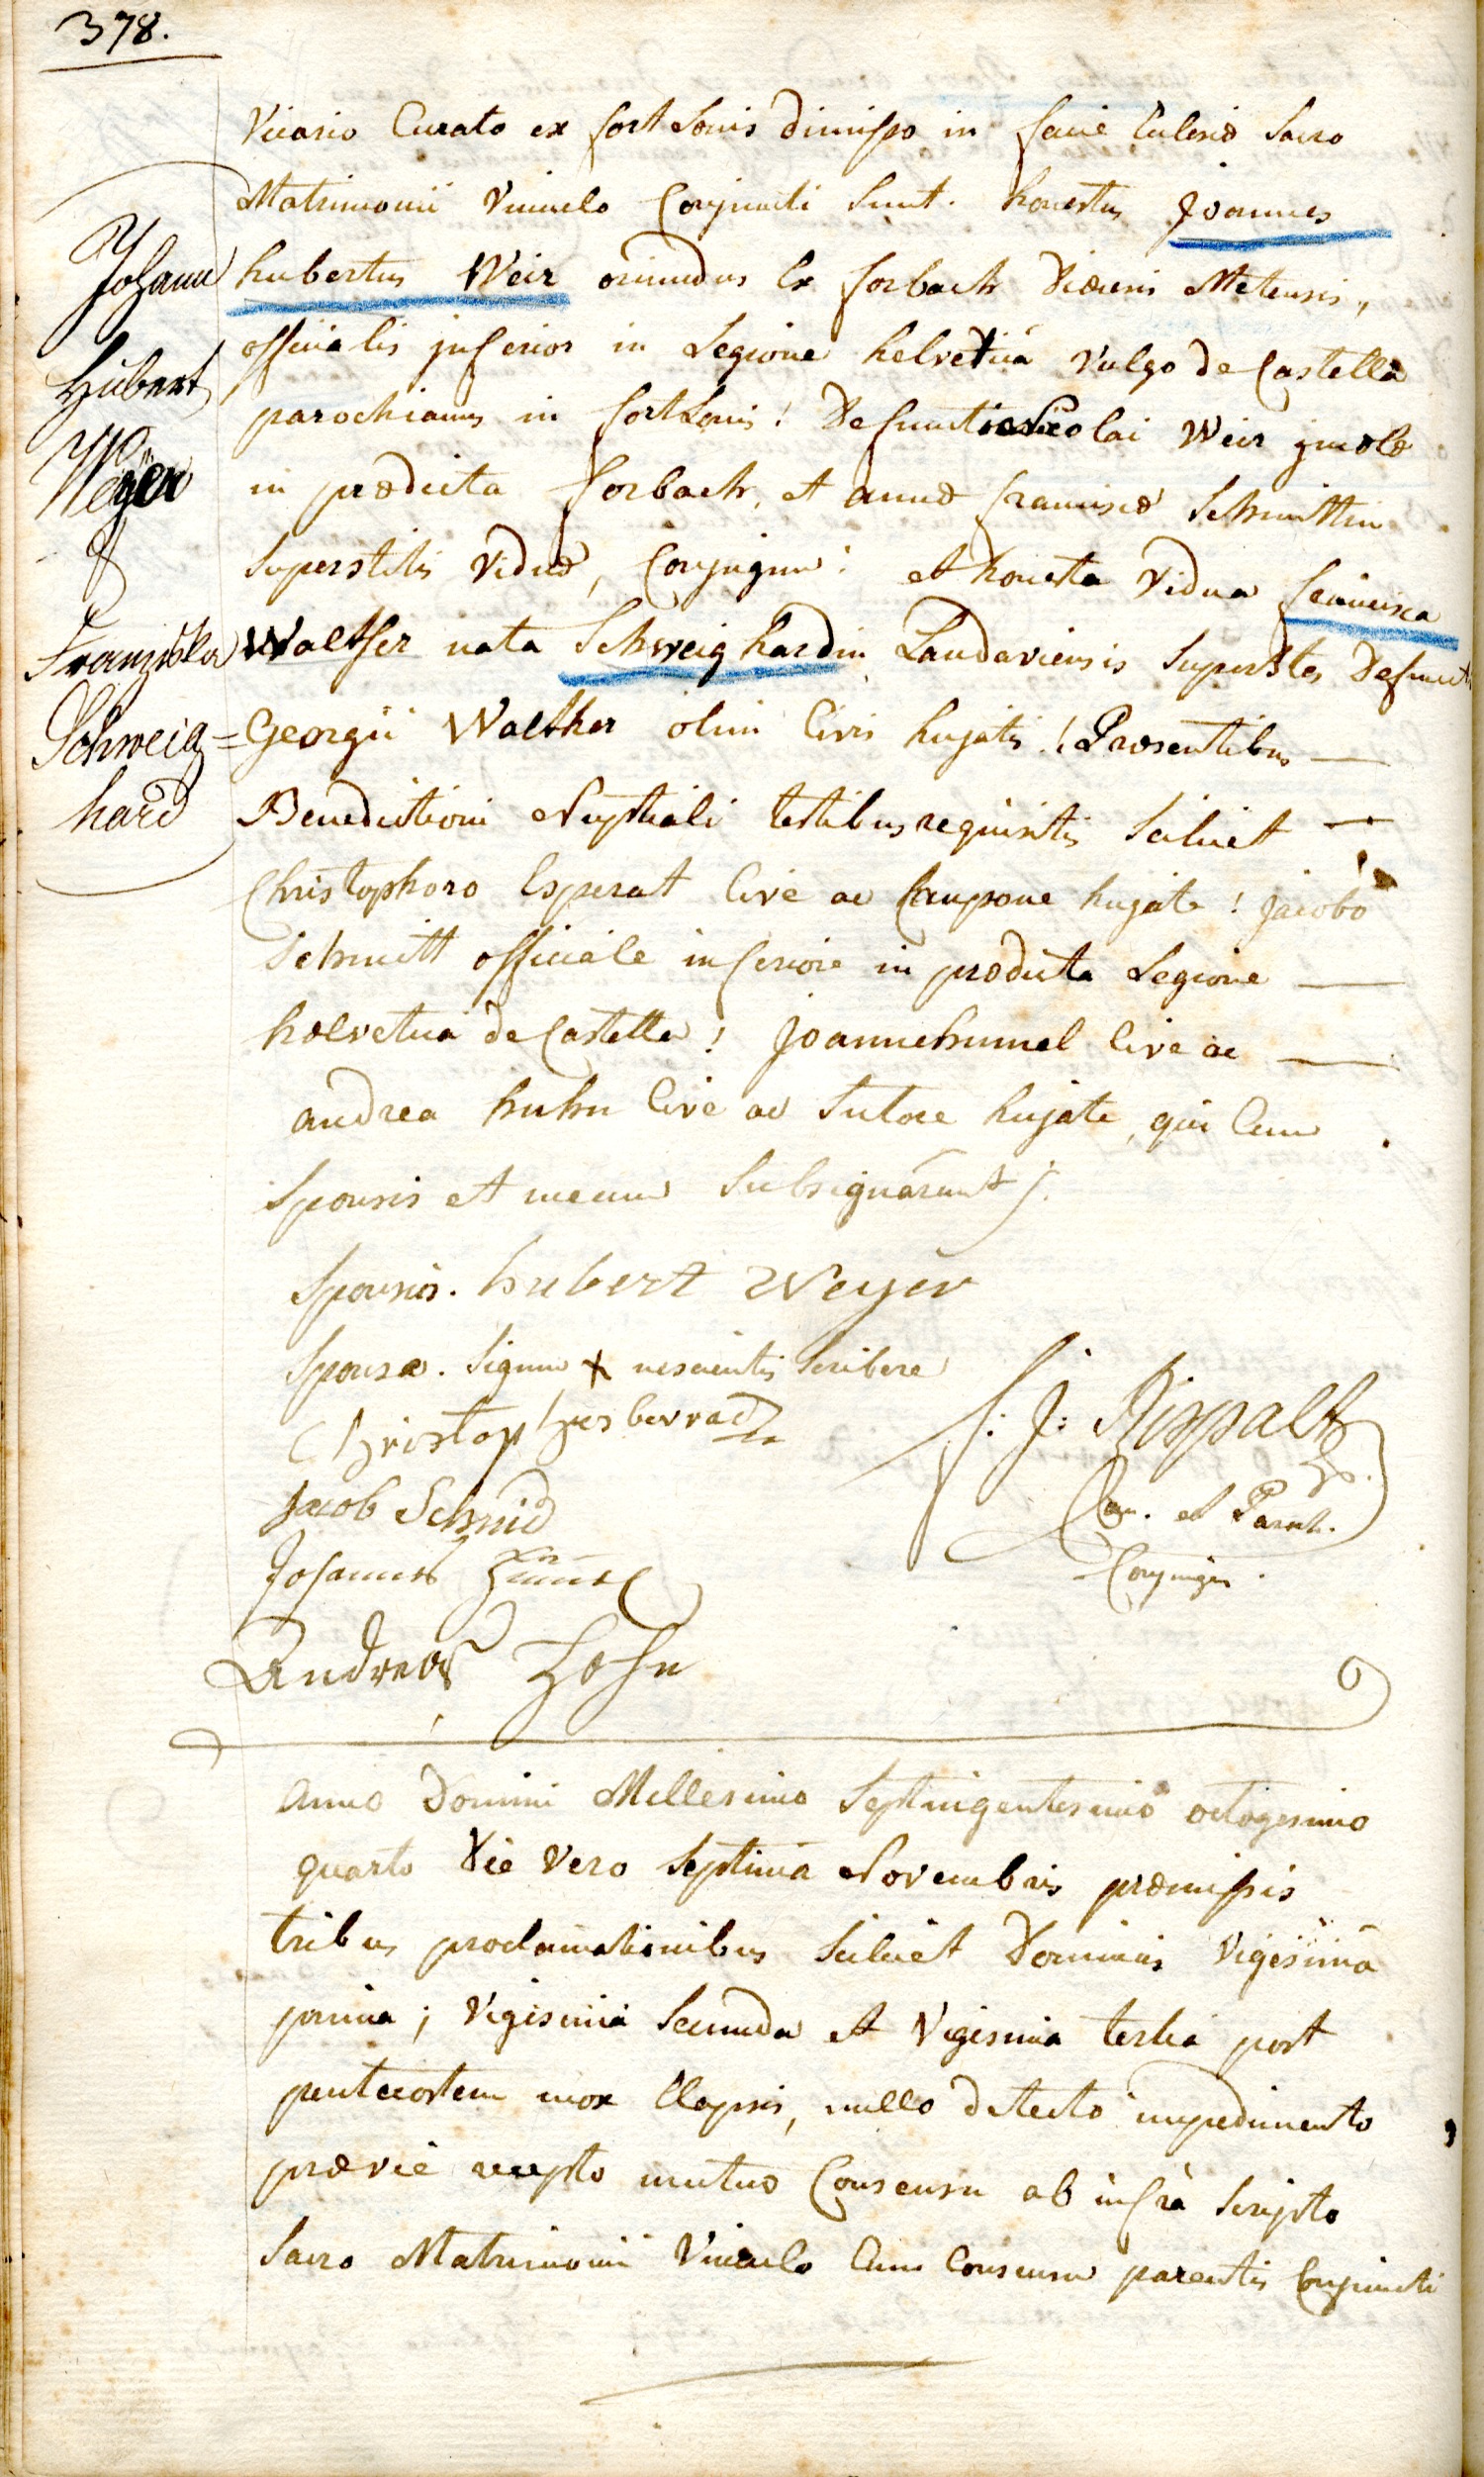 378.
Vicario Curato ex fort Louis dimisso in facie Ecclesiæ Sacro
Matrimonii Vinculo Conjuncti Sunt. honestus Joannes
hubertus Weir oriundus Ex forbach Diœcesis Metensis,
officialis inferior in Legione helvetica Vulgo de Castella
parochianus in fort Louis! Defuncti Nicolai Weir incolæ
in prædicta forbach, et annæ franciscæ Schmittin
Superstitis Viduæ, Conjugum! et honesta Vidua francisca
Walther nata Schweighardin Landaviensis Superstes Defuncti
Georgii Walther olim Civis hujatis! Præsentibus
Benedictioni Nuptiali testibus requisitis Scilicet
Christophoro Esperat Cive ac Caupone hujate! jacobo
Schmitt officiale inferiore in prædicta Legione
helvetica de Castella! Joanne humel Cive ac
andrea huhn Cive ac Sutore hujate, qui Cum
Sponsis et mecum Subsignârunt.
Johann
Hubert
Weÿer
&
Franziska
Schweig=
hard
Sponsis. hubert Weyer
Sponsæ. Signum + nescientis Scribere
Christoph
Jacob Schmid
Johannes
Andreas Hohn
f: J: Rispalt
Can. et Paroch.
Anno Domini Millesimo Septingentesimo octogesimo
quarto Die Vero Septima Novembris præmissis
tribus proclamationibus Scilicet Dominicis Vigesimâ
prima; Vigesimâ Secunda et Vigesima tertiâ post
pentecostem mox Elapsis, nullo detecto impedimento
prævie recepto mutuo Consensu ab infrà Scripto
Sacro Matrimonii Vinculo Cum Consensu parentis Conjuncti